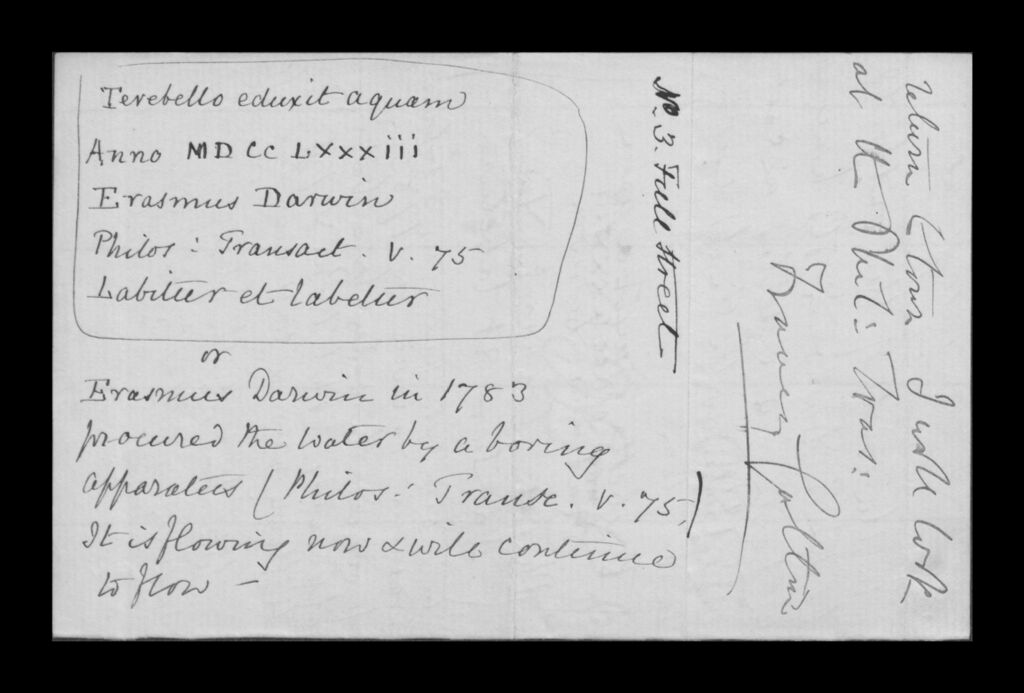 Terebello eduxit aquam
Anno MDCCLXXXiii
Erasmus Darwin
Philos: Transact. V. 75
Labitur et labetur
or
Erasmus Darwin in 1783
procured the water by a boring
apparatus (Philos: Transc. V. 75.)
It is flowing now & will continue
to flow –
No. 3. Full Street
return I will look
at the Phil: Trans:
Francis Galton